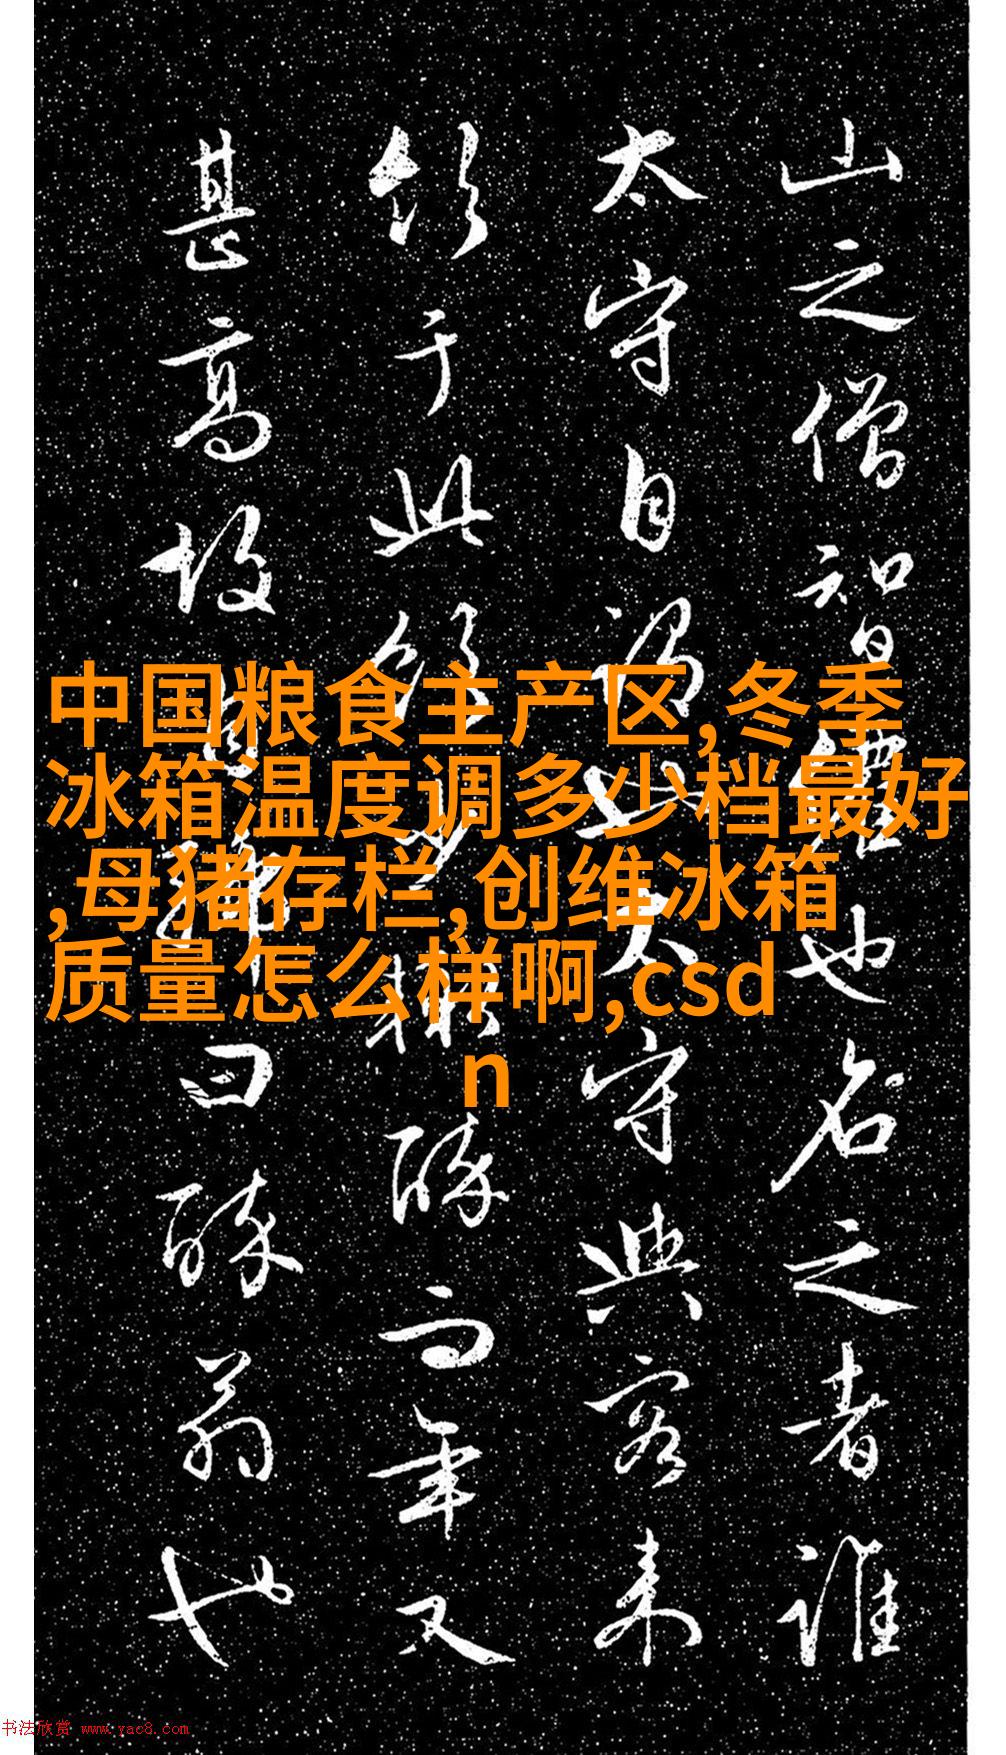 山之僧智僊也名之者誰
太守自謂也太守與客来
飲于此飲少輒醉而年又
甚高故自號曰醉翁也
中国粮食主产区,冬季
冰箱温度调多少档最好
,母猪存栏,创维冰箱
质量怎么样啊,csd
n
书法欣赏 www.yac8.com